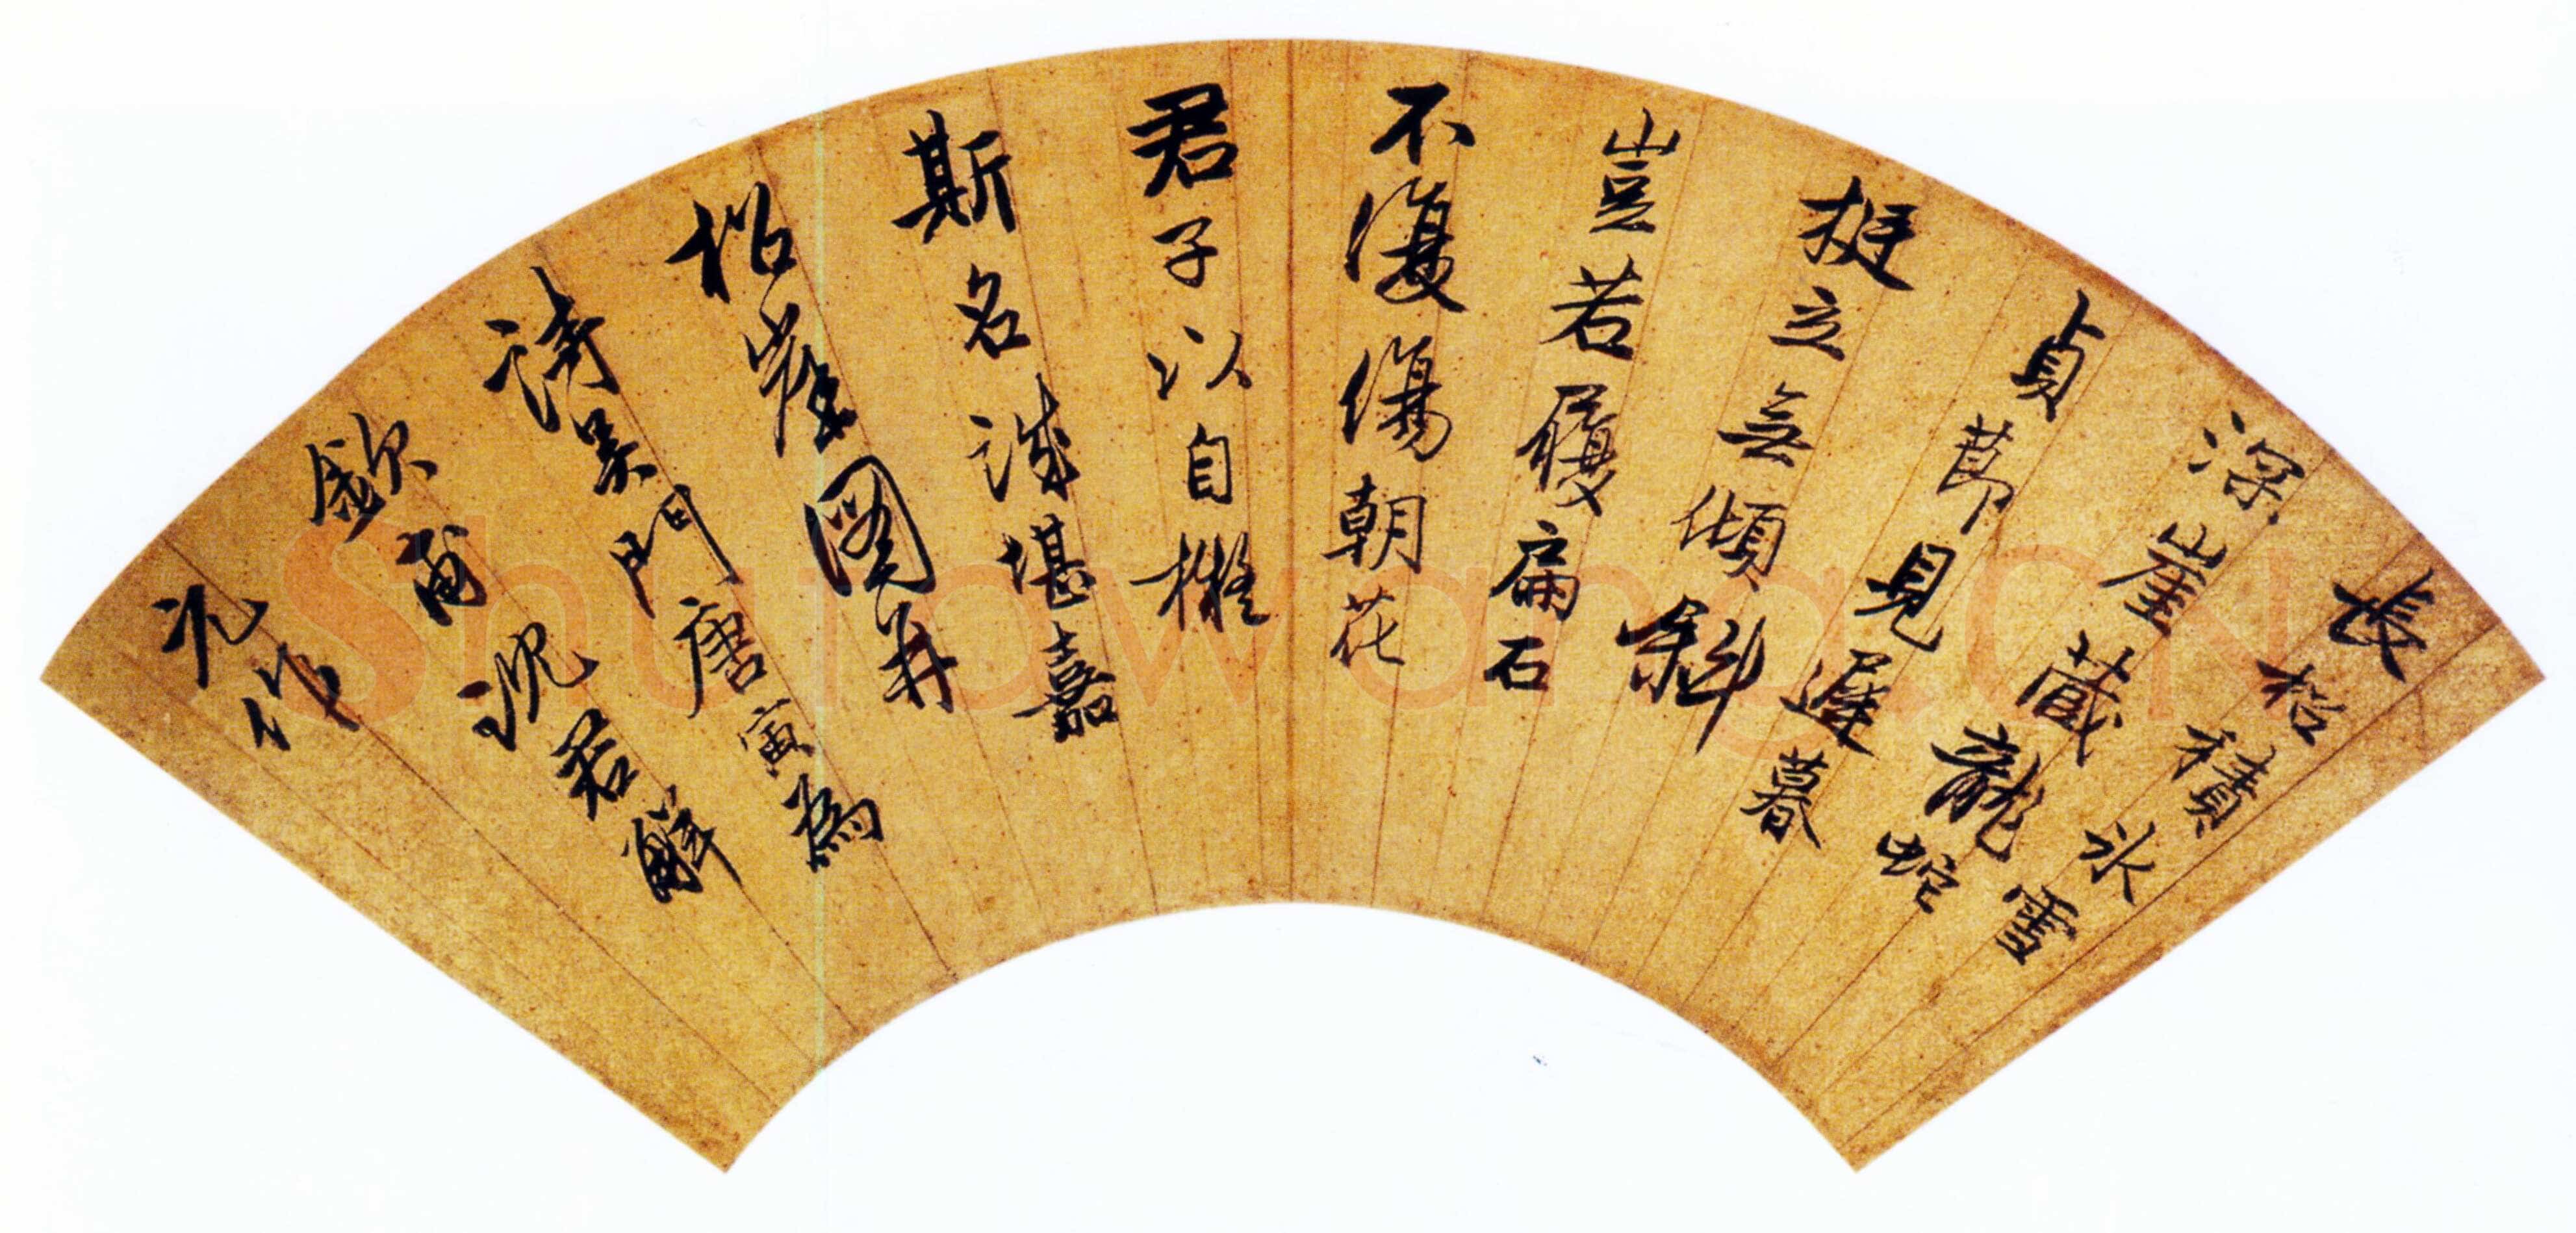 長松積氷雪
深崖藏龍蛇
貞節見遲暮
挺立無傾斜
豈若履扁石
不復傷朝花
君子以自擬
斯名誠堪嘉
松崖圖并
詩吴門唐寅為
欽甫沈君解
元作
Shufawang.CN